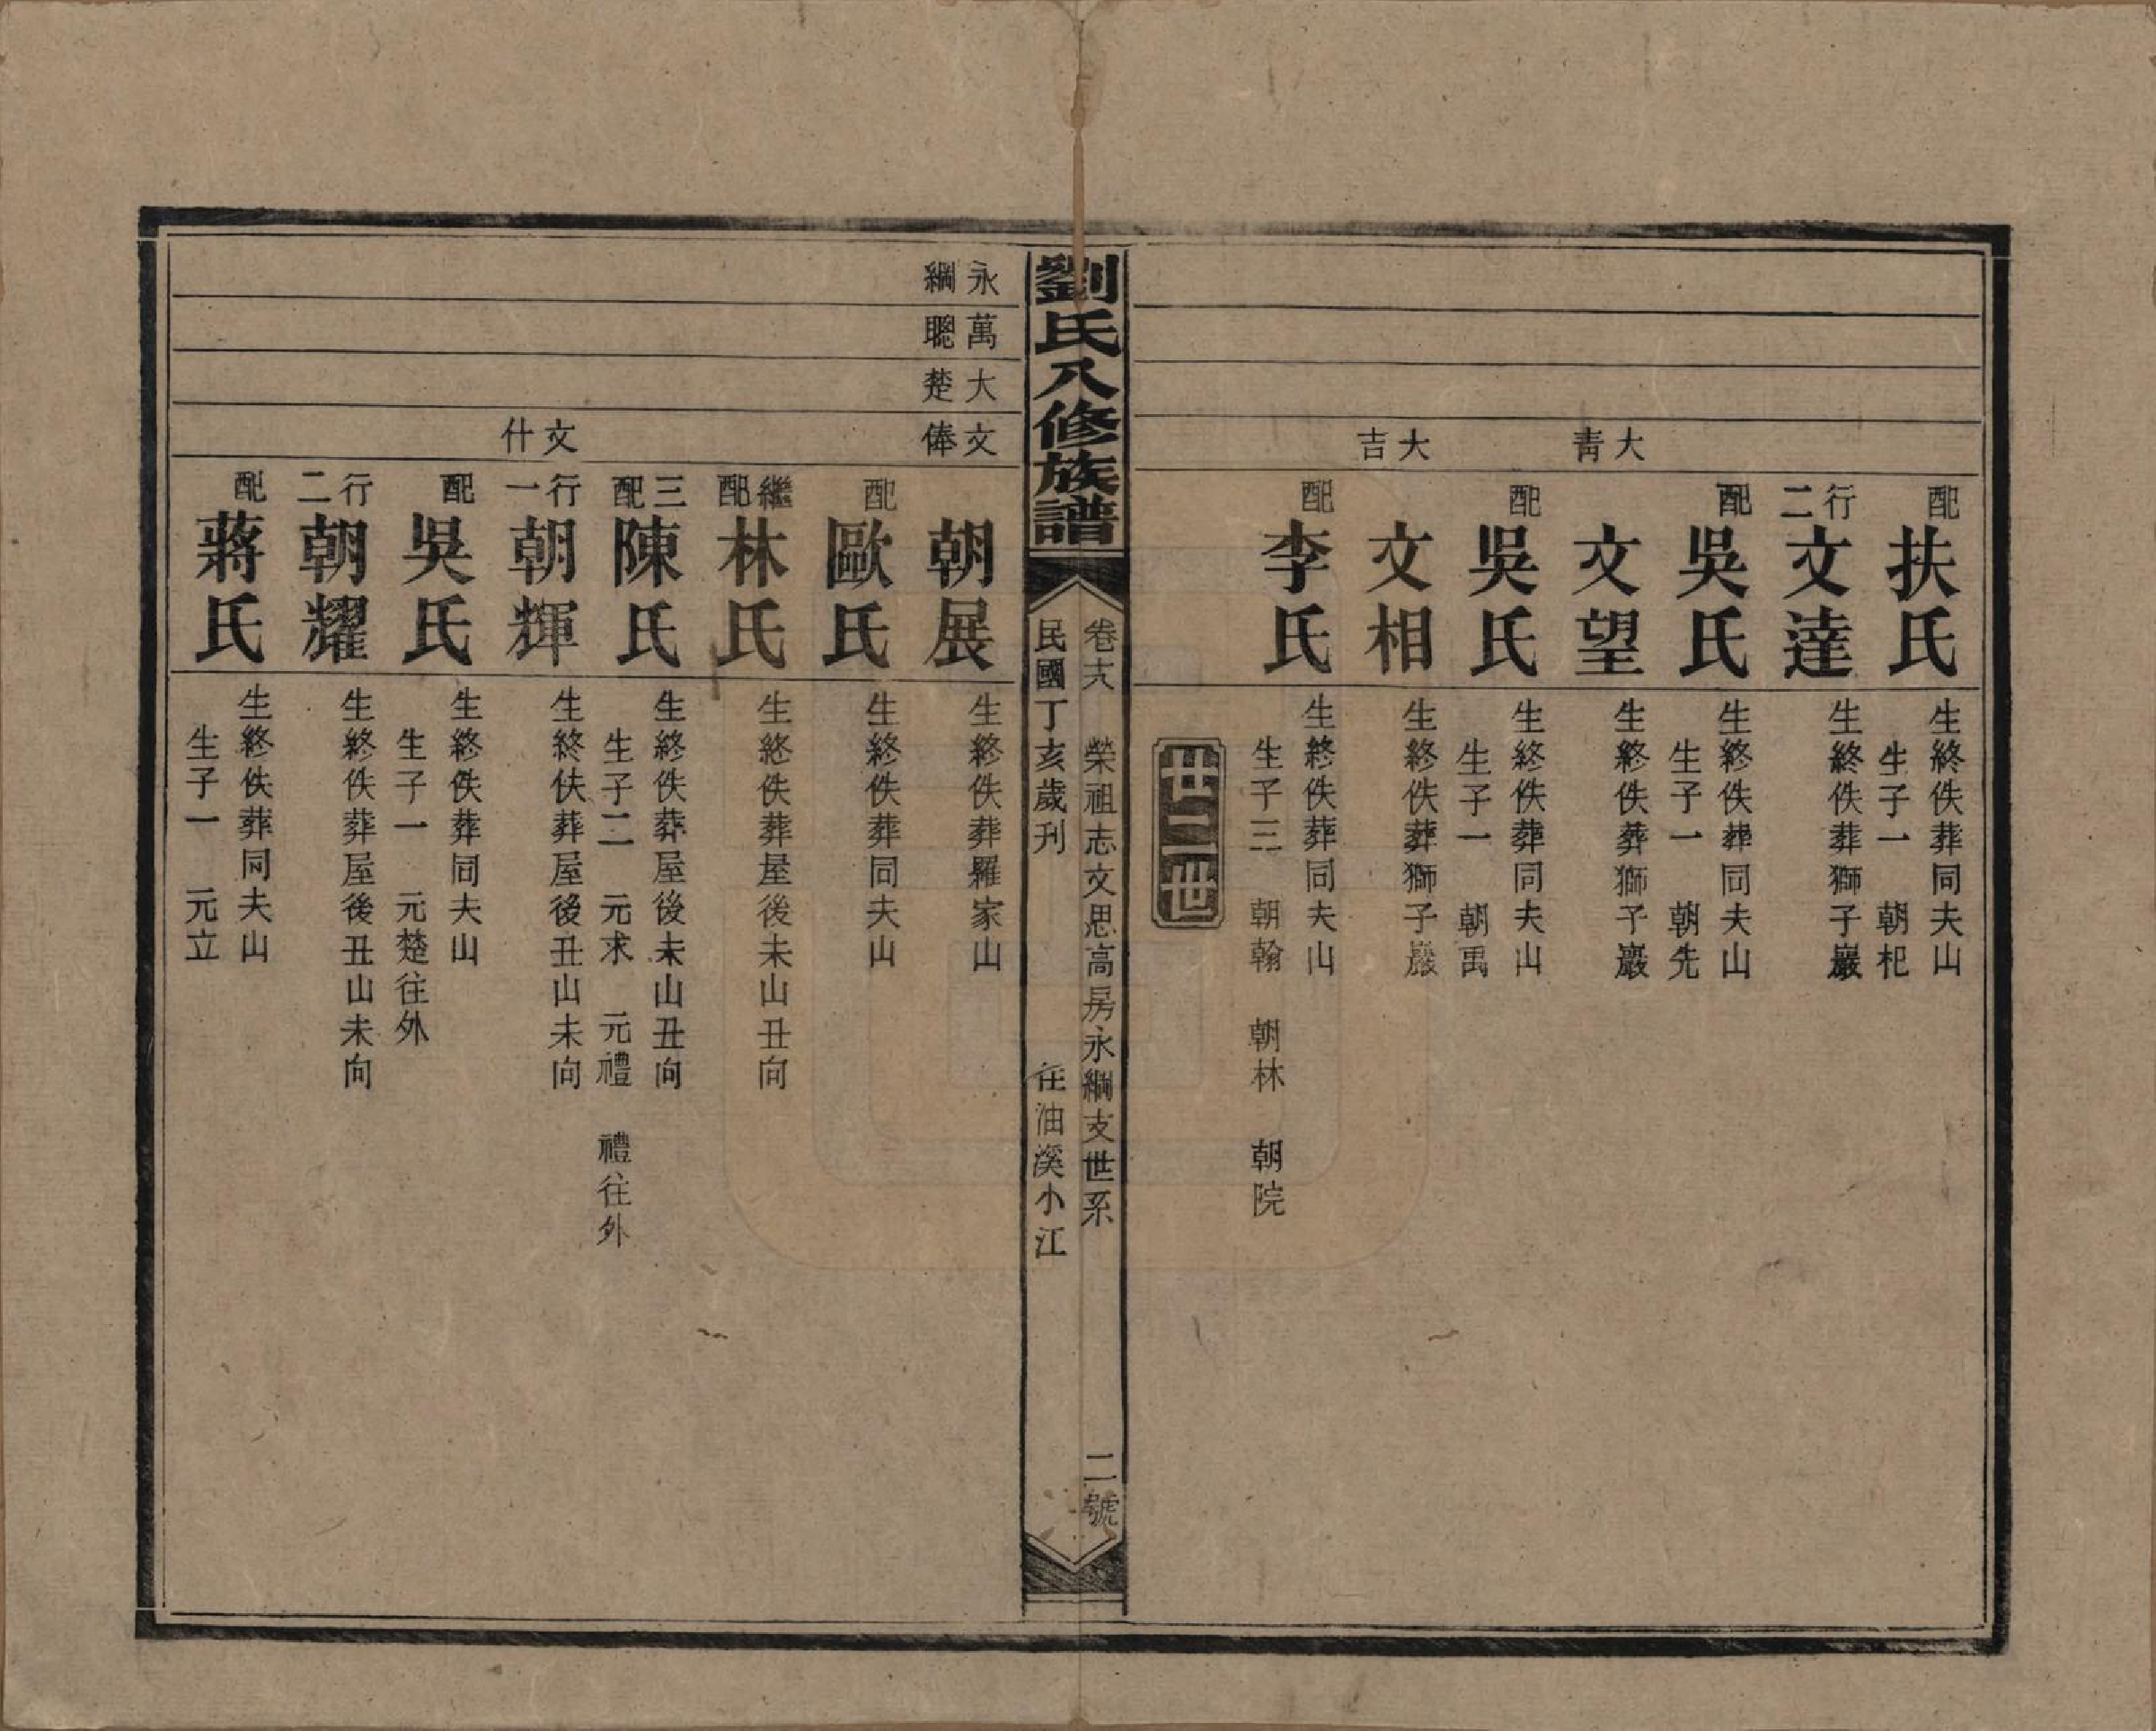 配扶氏 生終佚葬同夫山
生子一 朝杞
行二文達 生終佚葬獅子巖
配吳氏 生終佚葬同夫山
生子一 朝先
大青
文望 生終佚葬獅子巖
配吳氏 生終佚葬同夫山
生子一 朝禹
大吉
文相 生終佚葬獅子巖
配李氏 生終佚葬同夫山
生子三 朝翰 朝林 朝院
廿二世
劉氏八修族譜
卷十六 榮祖志文思高房永綱支世系 二號
民國丁亥歲刊 在油溪小江
永綱
萬聰
大楚
文俸
朝展 生終佚葬羅家山
配歐氏 生終佚葬同夫山
繼配林氏 生終佚葬屋後未山丑向
三配陳氏 生終佚葬屋後未山丑向
生子二 元求 元禮 禮往外
文什
行一朝輝 生終佚葬屋後丑山未向
配吳氏 生終佚葬同夫山
生子一 元楚往外
行二朝耀 生終佚葬屋後丑山未向
配蔣氏 生終佚葬同夫山
生子一 元立